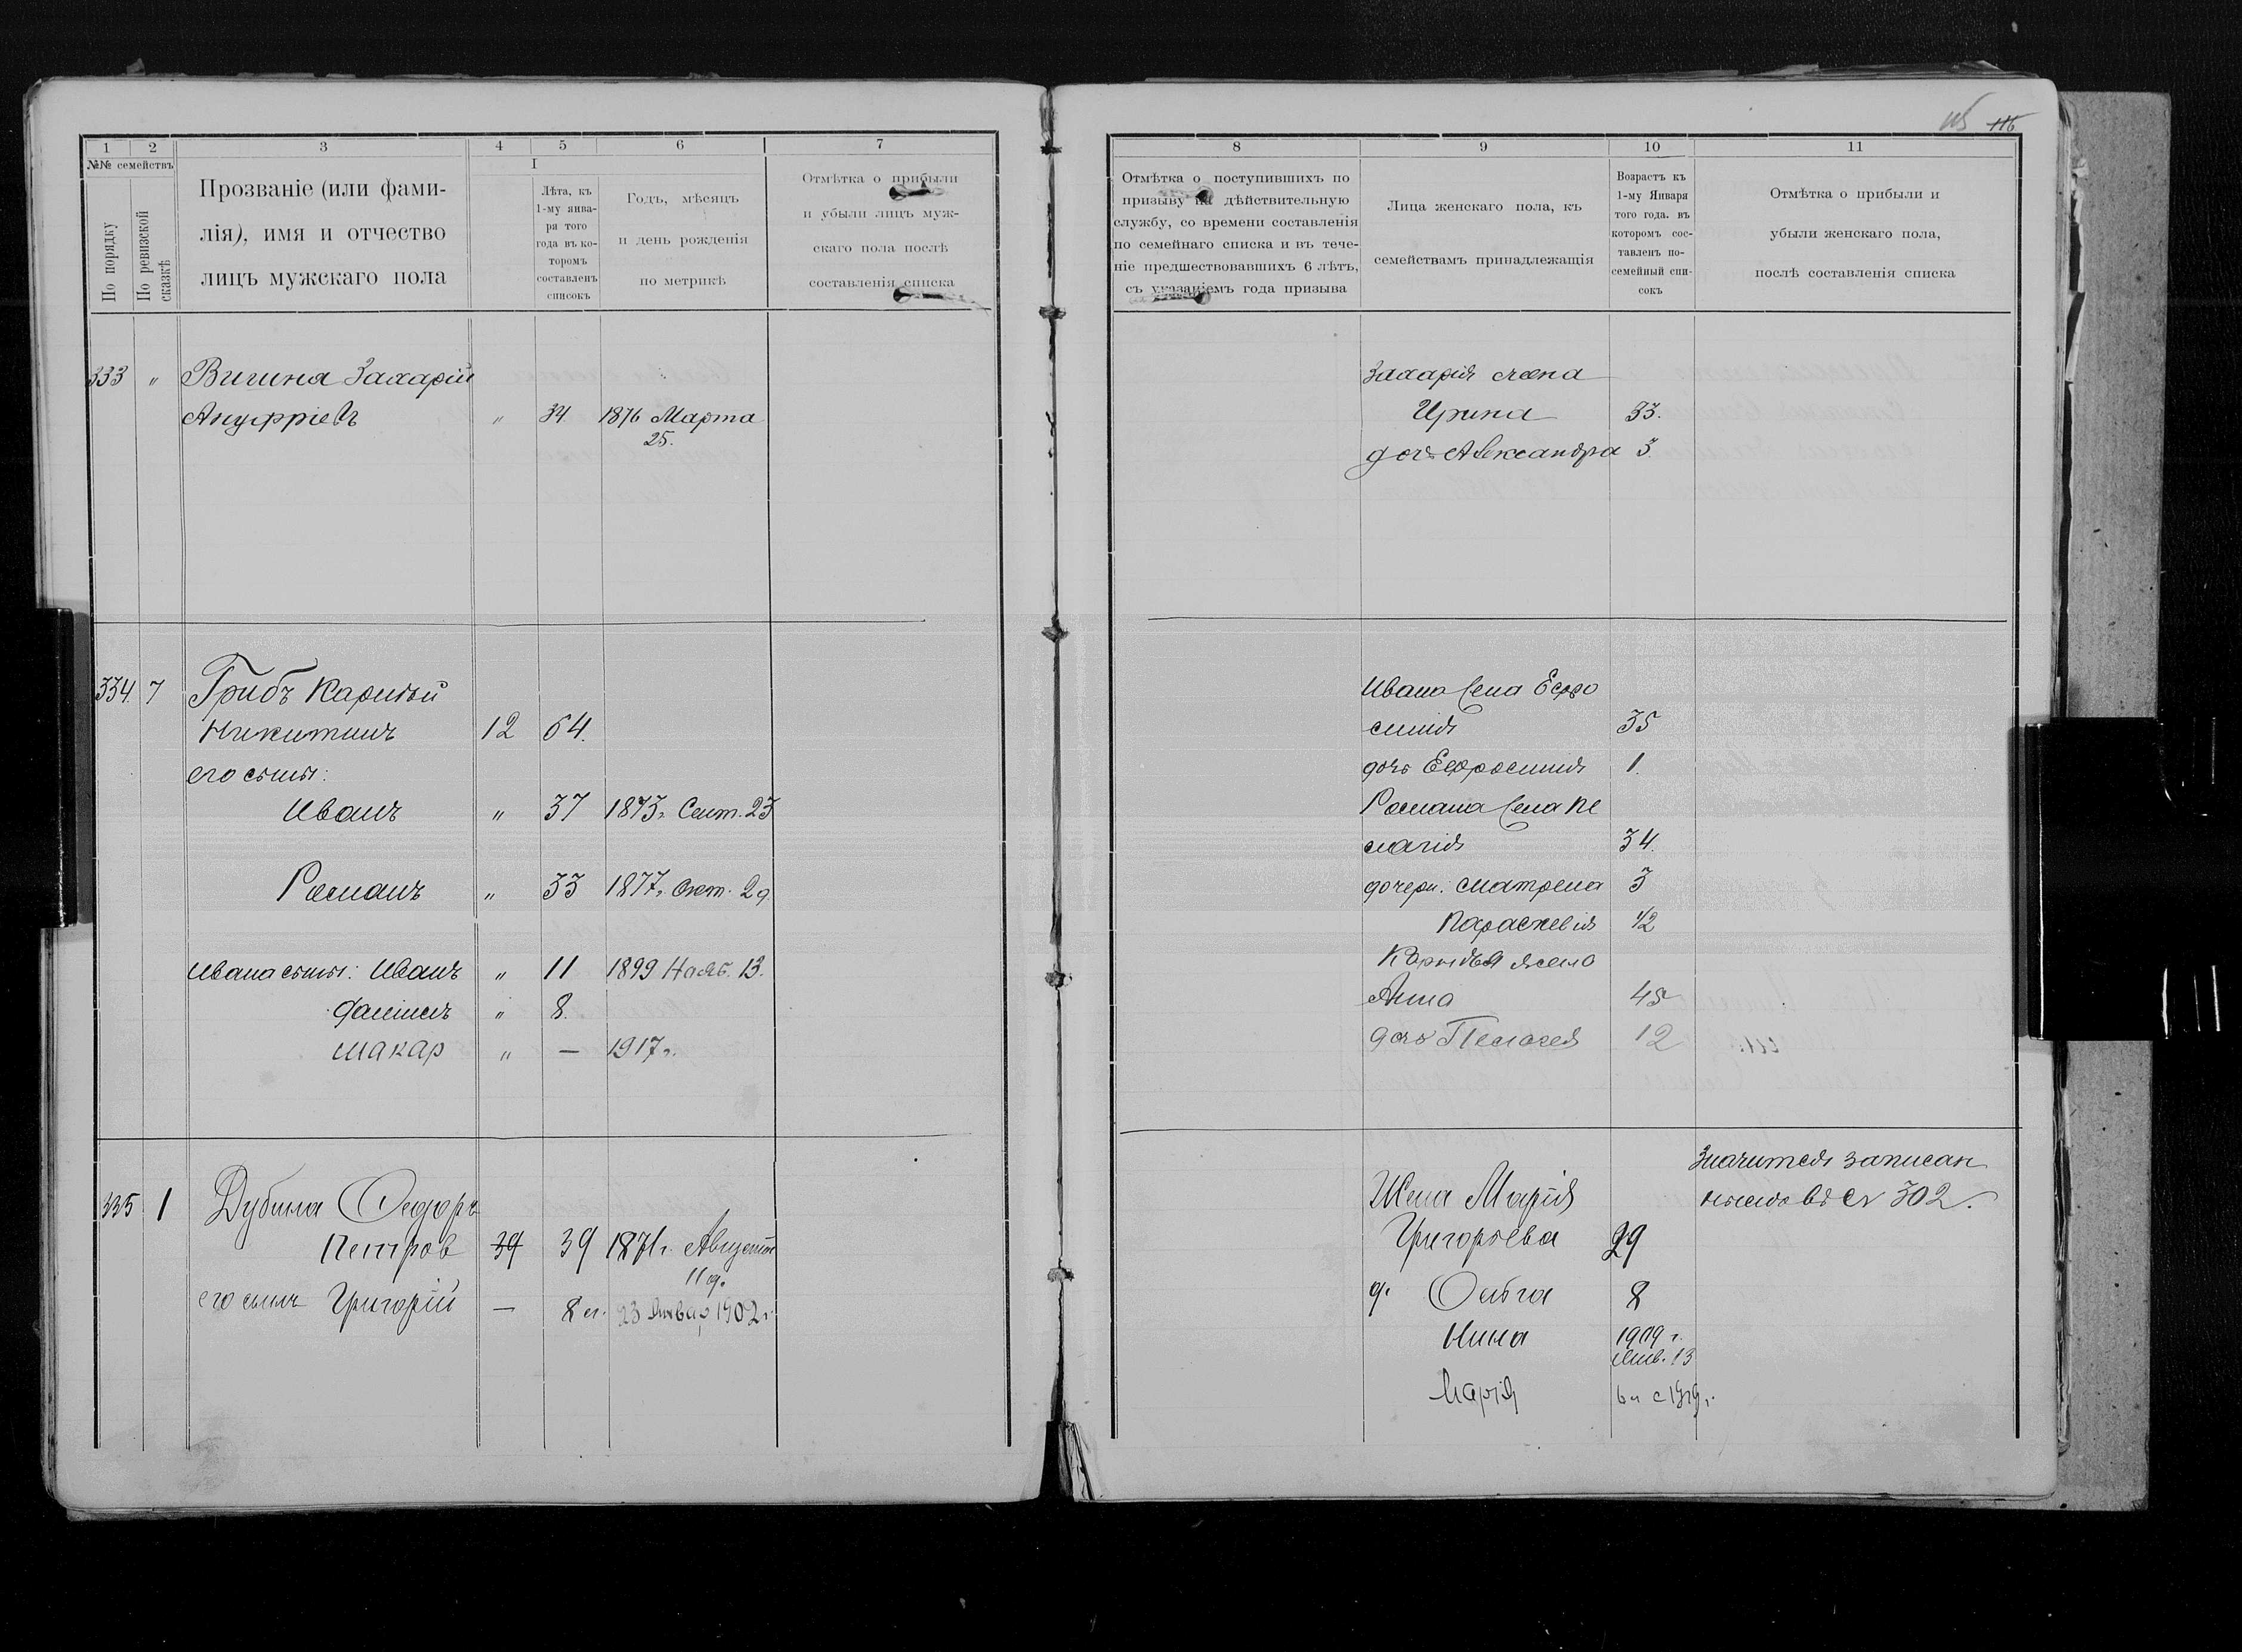 115 116
1 2 3 4 5 6 7
№№ семействъ
По порядку
По ревизской сказкѣ
Прозваніе (или фами-
лія), имя и отчество
лицъ мужскаго пола
I
Лѣта, къ
1-му янва-
ря того
года въ ко-
торомъ
составленъ
списокъ
Годъ, мѣсяцъ
и день рожденія
по метрикѣ
Отмѣтка о прибыли
и убыли лицъ муж-
скаго пола послѣ
составленія списка
333 " Вигина Захарій
Ануфріевъ " 34 1876 Марта
25.
334. 7 Грибъ Карнѣй
Никитинъ 12 64.
его сыны:
Иванъ " 37 1873г. Сент. 23
Романъ " 33 1877г. Окт. 29
Ивана сыны: Иванъ " 11 1899 Нояб. 13.
Даніилъ " 8.
Макар " — 1917г.
335 1 Дубина Федоръ
Петров 39 39 1871г. Августа
11 д.
его сынъ Григорій — 8 л. 23 Январ 1902 г.
8 9 10 11
Отмѣтка о поступившихъ по
призыву на дѣйствительную
службу, со времени составленія
по семейнаго списка и въ тече-
ніе предшествовавшихъ 6 лѣтъ,
съ указаніемъ года призыва
Лица женскаго пола, къ
семействамъ принадлежащія
Возрастъ къ
1-му Января
того года. въ
которомъ сос-
тавленъ по-
семейный спи-
сокъ
Отмѣтка о прибыли и
убыли женскаго пола,
послѣ составленія списка
Захарія жена
Ирина 33.
дочь Александра 3.
Ивана жена Ефро
синія 35
дочь Ефросинія 1.
Романа жена Пе
лагія 34.
дочери: Матрена 3
Параскевія 1/2
Карнѣя жена
Анна 45
дочь Пелагея 12
Значится записан
Жена Марія ною въ № 302.
Григорьева 29
д. Ольга 8
Нина 1909 г.
Янв. 13
Марія 6 л с 1919 г.